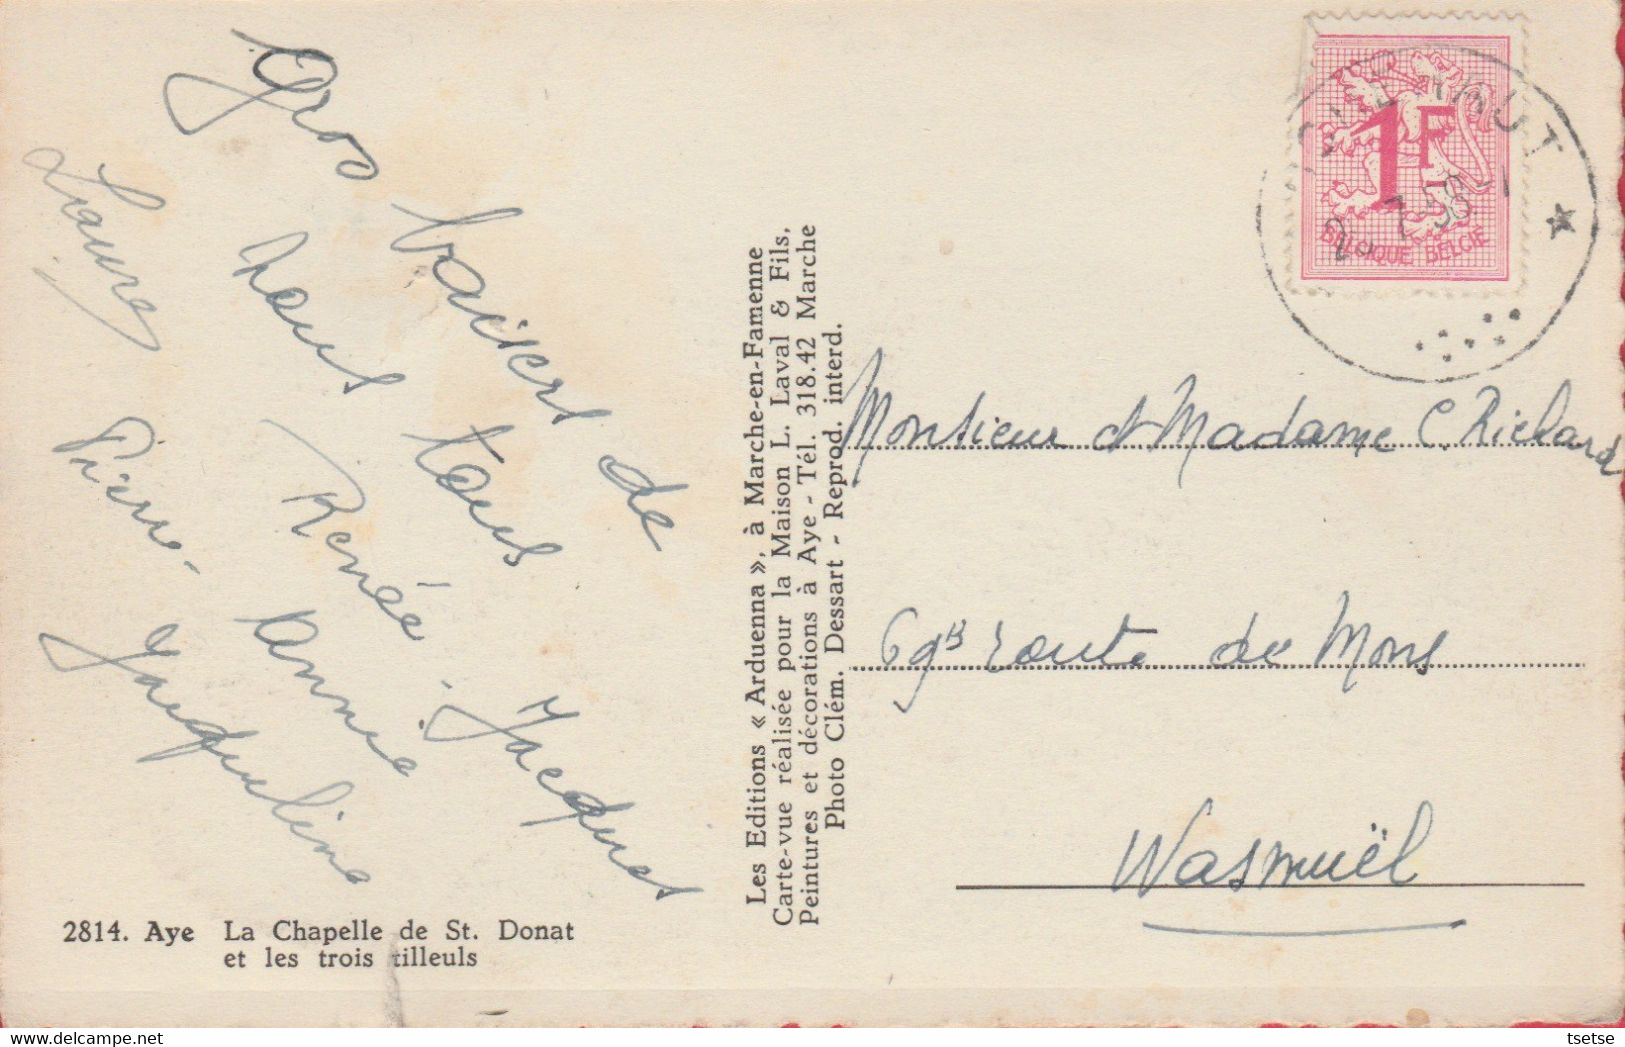 Gros baisers de
nous tous
Renée Jacques
Annie
Pierre - Jacqueline
2814. Aye La Chapelle de St. Donat
et les trois tilleuls
Les Editions « Arduenna », à Marche-en-Famenne
Carte-vue réalisée pour la Maison L. Laval & Fils,
Peintures et décorations à Aye - Tél. 318.42 Marche
Photo Clém. Dessart - Reprod. interd.
1F
BELGIQUE BELGIE
Monsieur et Madame C. Richard
69B route de Mons
Wasmuël
www.delcampe.net
tsetse